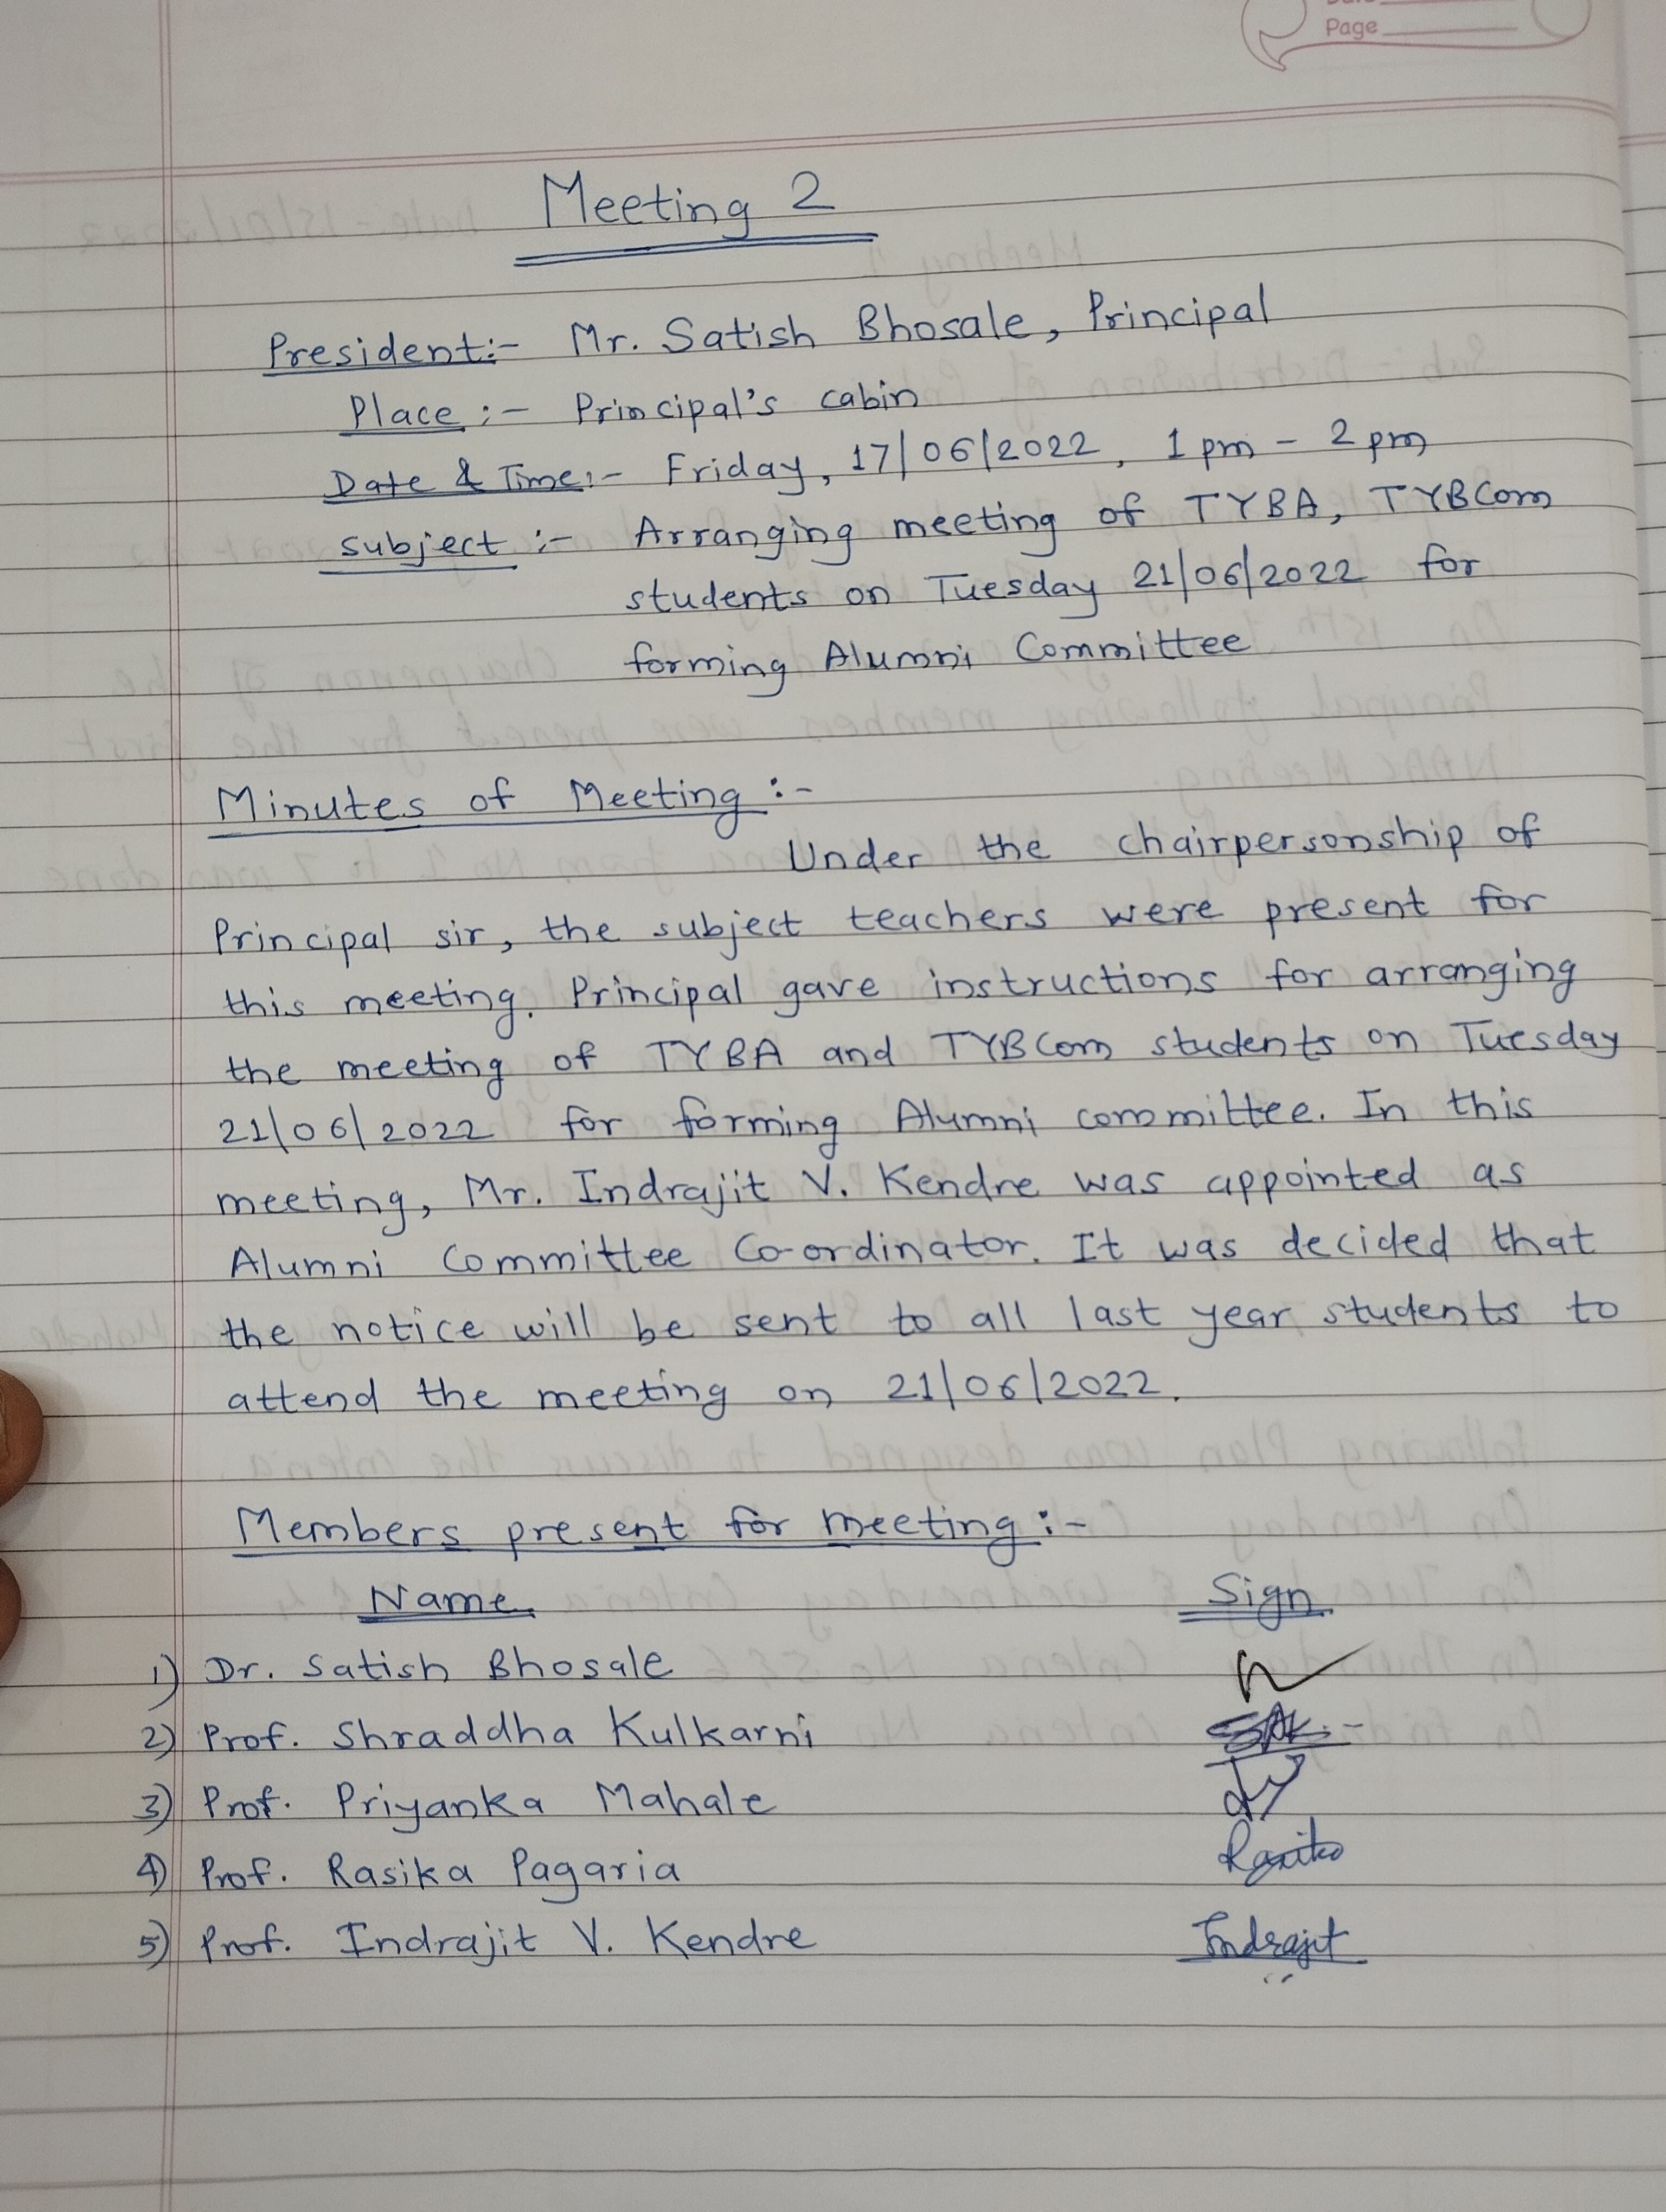 Page
Meeting 2
President:- Mr. Satish Bhosale, Principal
Place :- Principal's cabin
Date & Time:- Friday, 17/06/2022, 1 pm - 2 pm
subject :- Arranging meeting of TYBA, TYBCom
students on Tuesday 21/06/2022 for
forming Alumni Committee
Minutes of Meeting :-
Under the chairpersonship of
Principal sir, the subject teachers were present for
this meeting. Principal gave instructions for arranging
the meeting of TYBA and TYBCom students on Tuesday
21/06/2022 for forming Alumni committee. In this
meeting, Mr. Indrajit V. Kendre was appointed as
Alumni Committee Co-ordinator. It was decided that
the notice will be sent to all last year students to
attend the meeting on 21/06/2022.
Members present for meeting :-
Name Sign
1) Dr. Satish Bhosale
2) Prof. Shraddha Kulkarni
3) Prof. Priyanka Mahale
4) Prof. Rasika Pagaria
5) Prof. Indrajit V. Kendre Indrajit